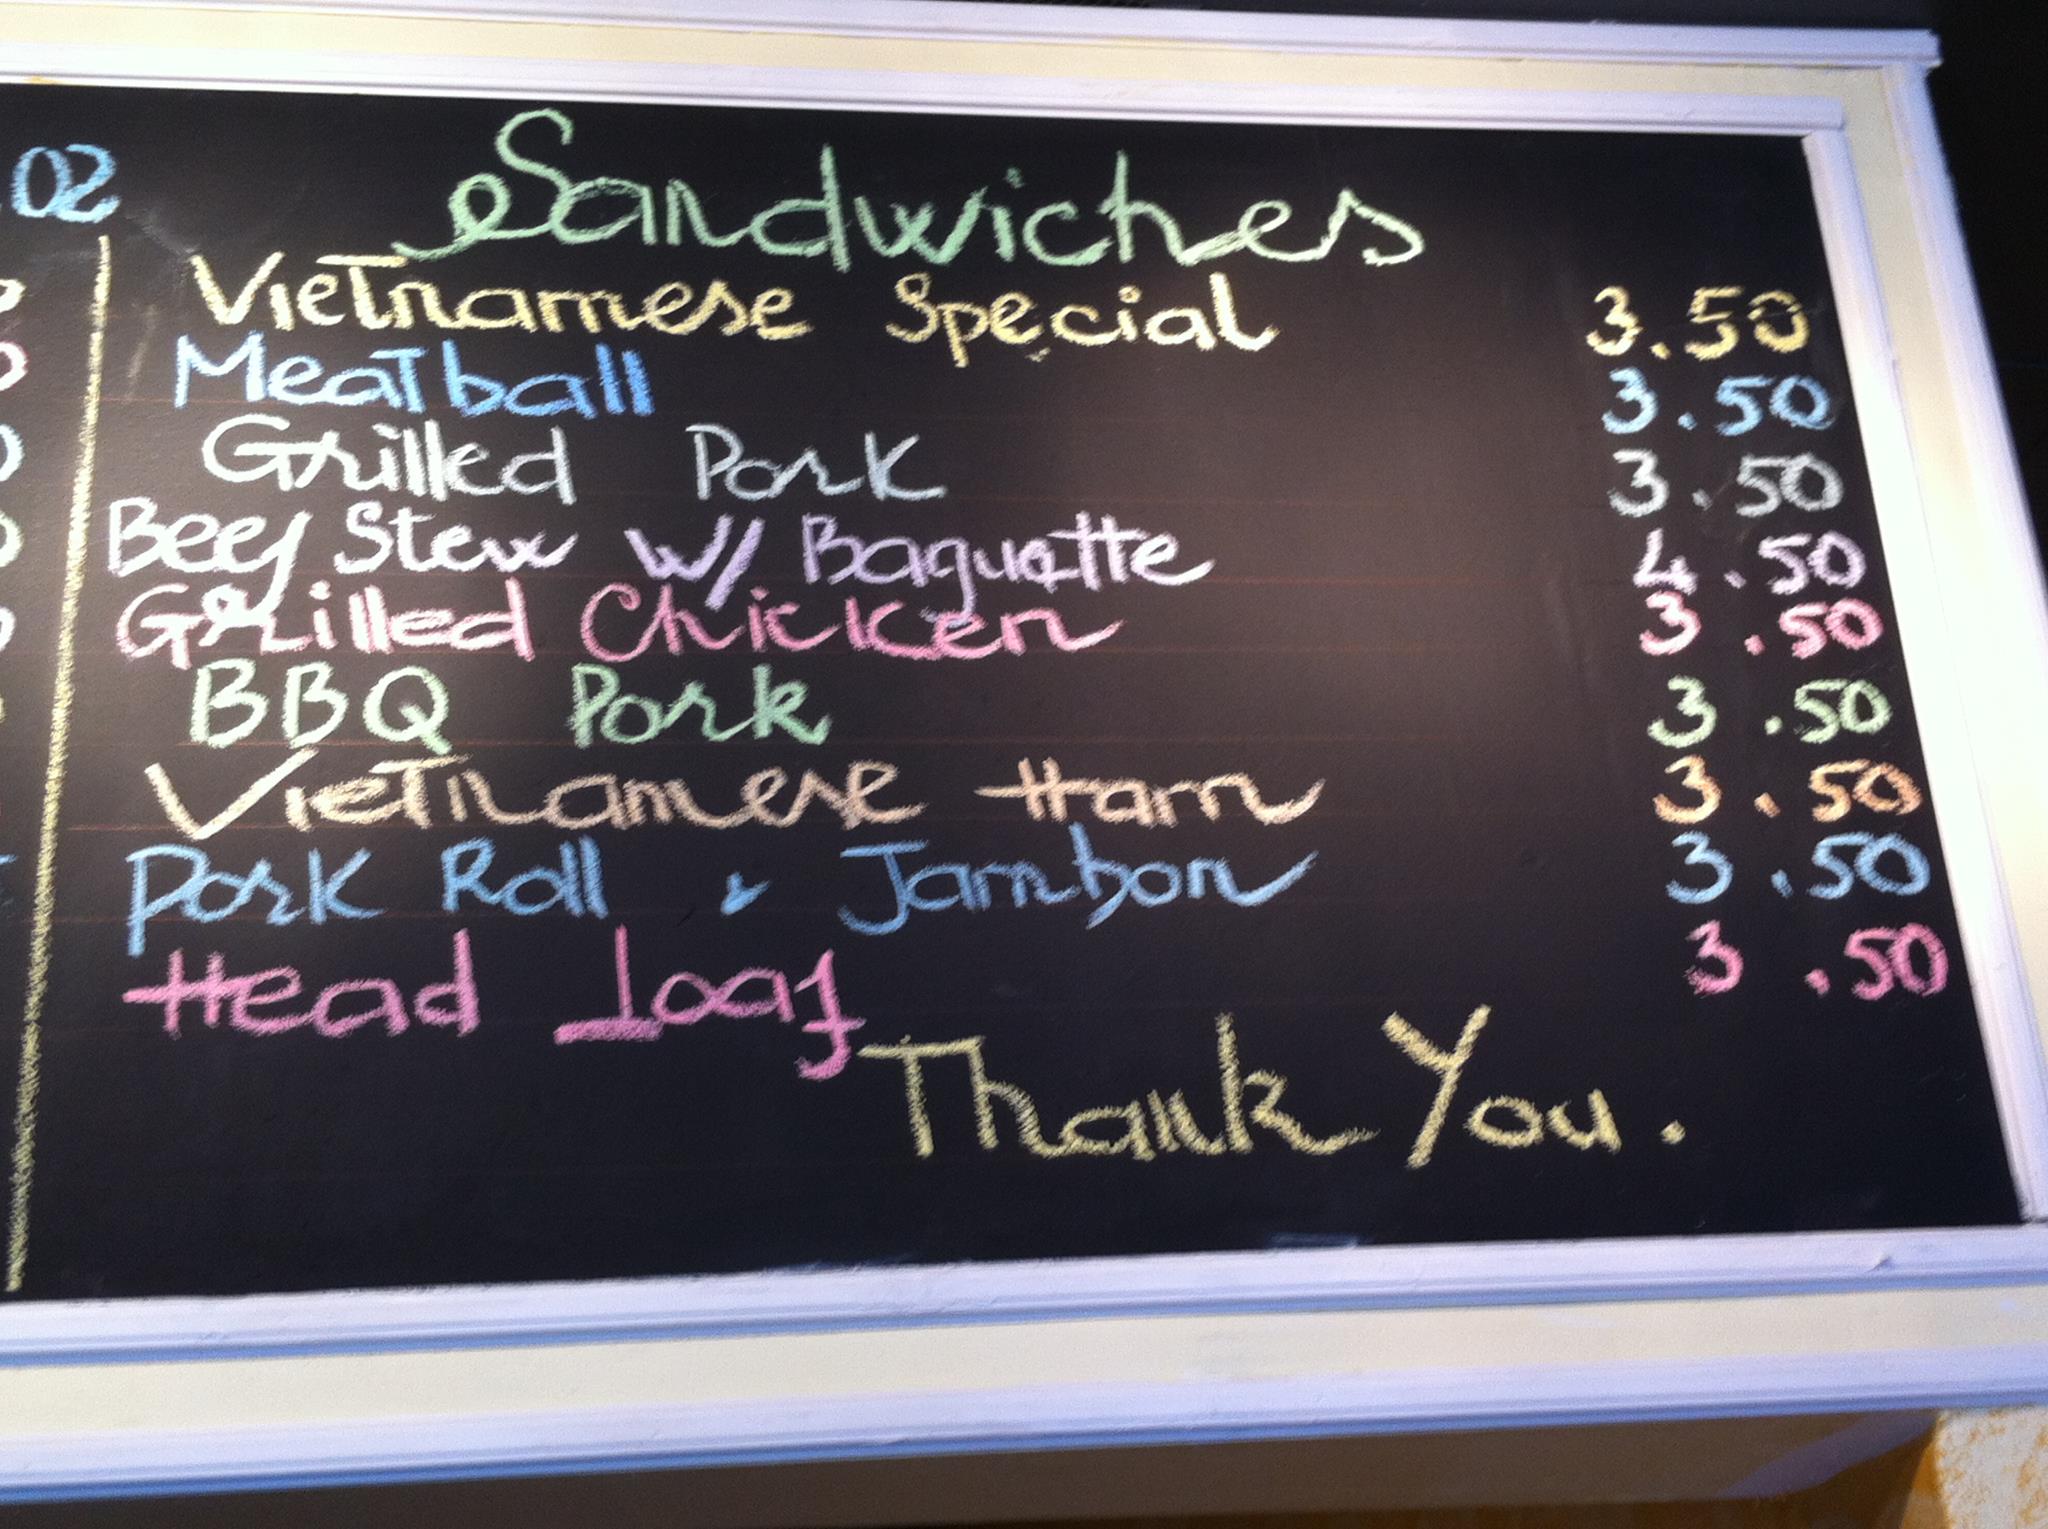 02
Sandwiches
Vietnamese Special 3.50
Meatball 3.50
Grilled Pork 3.50
Beef Stew w/ Baguette 4.50
Grilled Chicken 3.50
BBQ Pork 3.50
Vietnamese Ham 3.50
Pork Roll & Jambon 3.50
Head Loaf 3.50
Thank You.